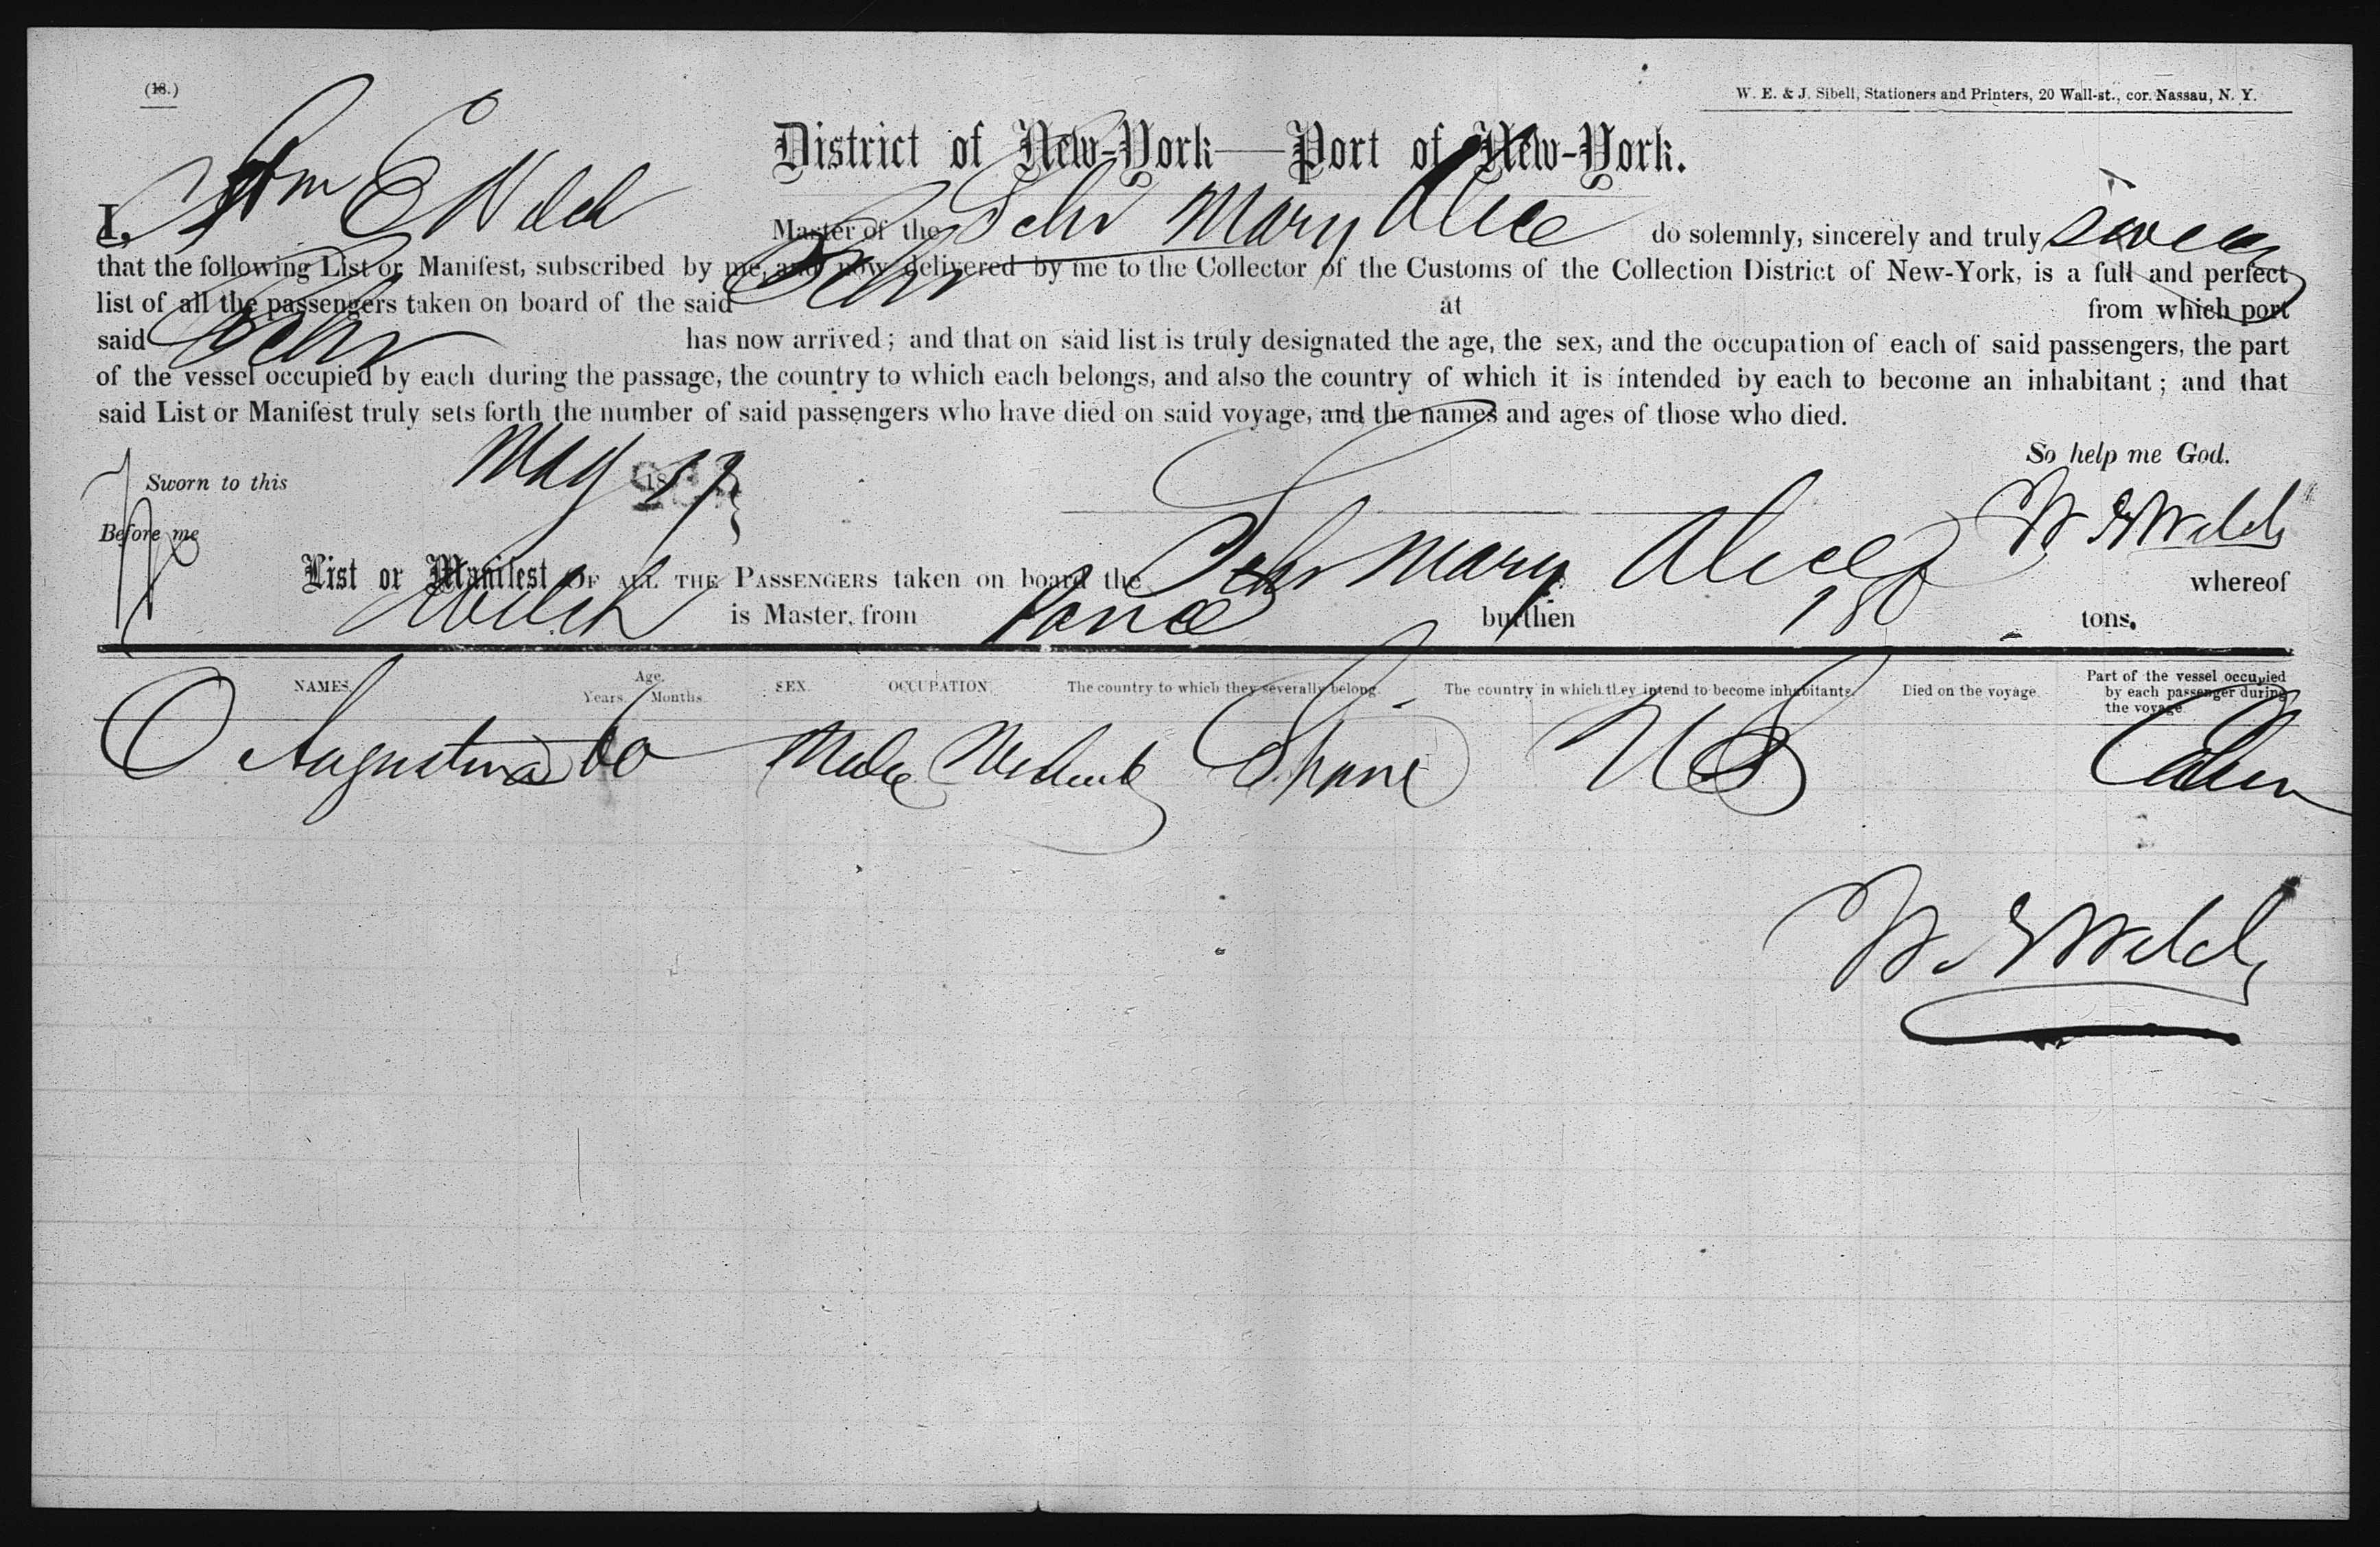 (18.)
W. E. & J. Sibell, Stationers and Printers, 20 Wall-st., cor. Nassau, N. Y.
District of New-York—Port of New-York.
I, Wm E Welch Master of the Schr Mary Alice do solemnly, sincerely and truly swear
that the following List or Manifest, subscribed by me, and now delivered by me to the Collector of the Customs of the Collection District of New-York, is a full and perfect
list of all the passengers taken on board of the said Schr at from which port
said Schr has now arrived; and that on said list is truly designated the age, the sex, and the occupation of each of said passengers, the part
of the vessel occupied by each during the passage, the country to which each belongs, and also the country of which it is intended by each to become an inhabitant; and that
said List or Manifest truly sets forth the number of said passengers who have died on said voyage, and the names and ages of those who died.
So help me God.
Sworn to this May 17 18
W E Welch
Before me
List or Manifest OF ALL THE PASSENGERS taken on board the Schr Mary Alice whereof
Welch is Master, from Ponce burthen 180 tons.
NAMES. Age. Years. Months. SEX. OCCUPATION. The country to which they severally belong. The country in which they intend to become inhabitants. Died on the voyage. Part of the vessel occupied by each passenger during the voyage.
O Augustina 60 Male Spain US Cabin
W. E Welch